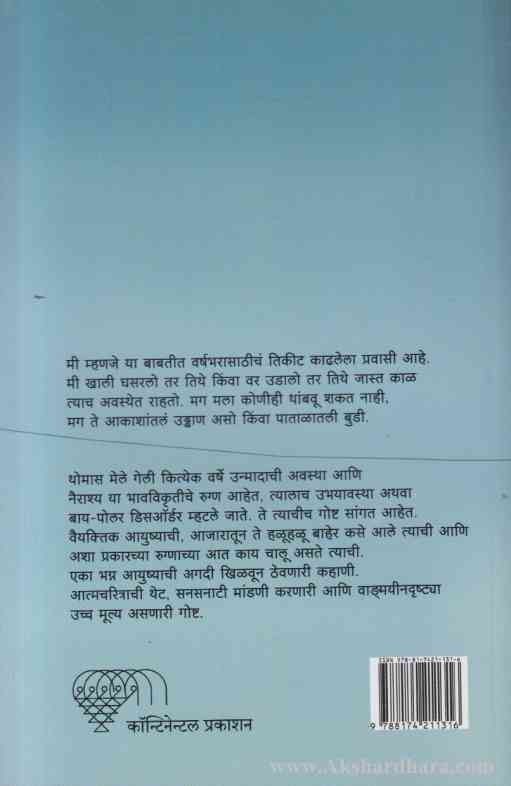 मी म्हणजे या बाबतीत वर्षभरासाठीचं तिकीट काढलेला प्रवासी आहे.
मी खाली घसरलो तर तिथे किंवा वर उडालो तर तिथे जास्त काळ
त्याच अवस्थेत राहतो. मग मला कोणीही थांबवू शकत नाही,
मग ते आकाशांतलं उड्डाण असो किंवा पाताळातली बुडी.
थोमास मेले गेली कित्येक वर्षे उन्मादाची अवस्था आणि
नैराश्य या भावविकृतीचे रुग्ण आहेत, त्यालाच उभयावस्था अथवा
बाय-पोलर डिसऑर्डर म्हटले जाते. ते त्याचीच गोष्ट सांगत आहेत.
वैयक्तिक आयुष्याची, आजारातून ते हळूहळू बाहेर कसे आले त्याची आणि
अशा प्रकारच्या रुग्णाच्या आत काय चालू असते त्याची.
एका भग्न आयुष्याची अगदी खिळवून ठेवणारी कहाणी.
आत्मचरित्राची थेट, सनसनाटी मांडणी करणारी आणि वाङ्मयीनदृष्ट्या
उच्च मूल्य असणारी गोष्ट.
कॉन्टिनेन्टल प्रकाशन
ISBN 978-81-7421-131-6
9 788174 211316
www.Akshardhara.com